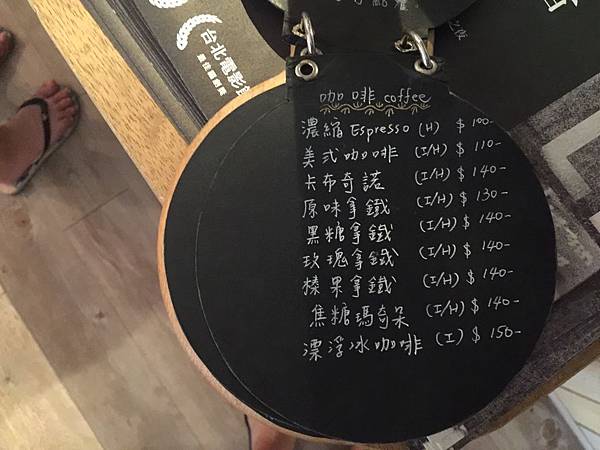 台北電影
咖啡 coffee
濃縮 Espresso (H) $ 100-
美式咖啡 (I/H) $ 110-
卡布奇諾 (I/H) $ 140-
原味拿鐵 (I/H) $ 130-
黑糖拿鐵 (I/H) $ 140-
玫瑰拿鐵 (I/H) $ 140-
榛果拿鐵 (I/H) $ 140-
焦糖瑪奇朵 (I/H) $ 140-
漂浮冰咖啡 (I) $ 150-